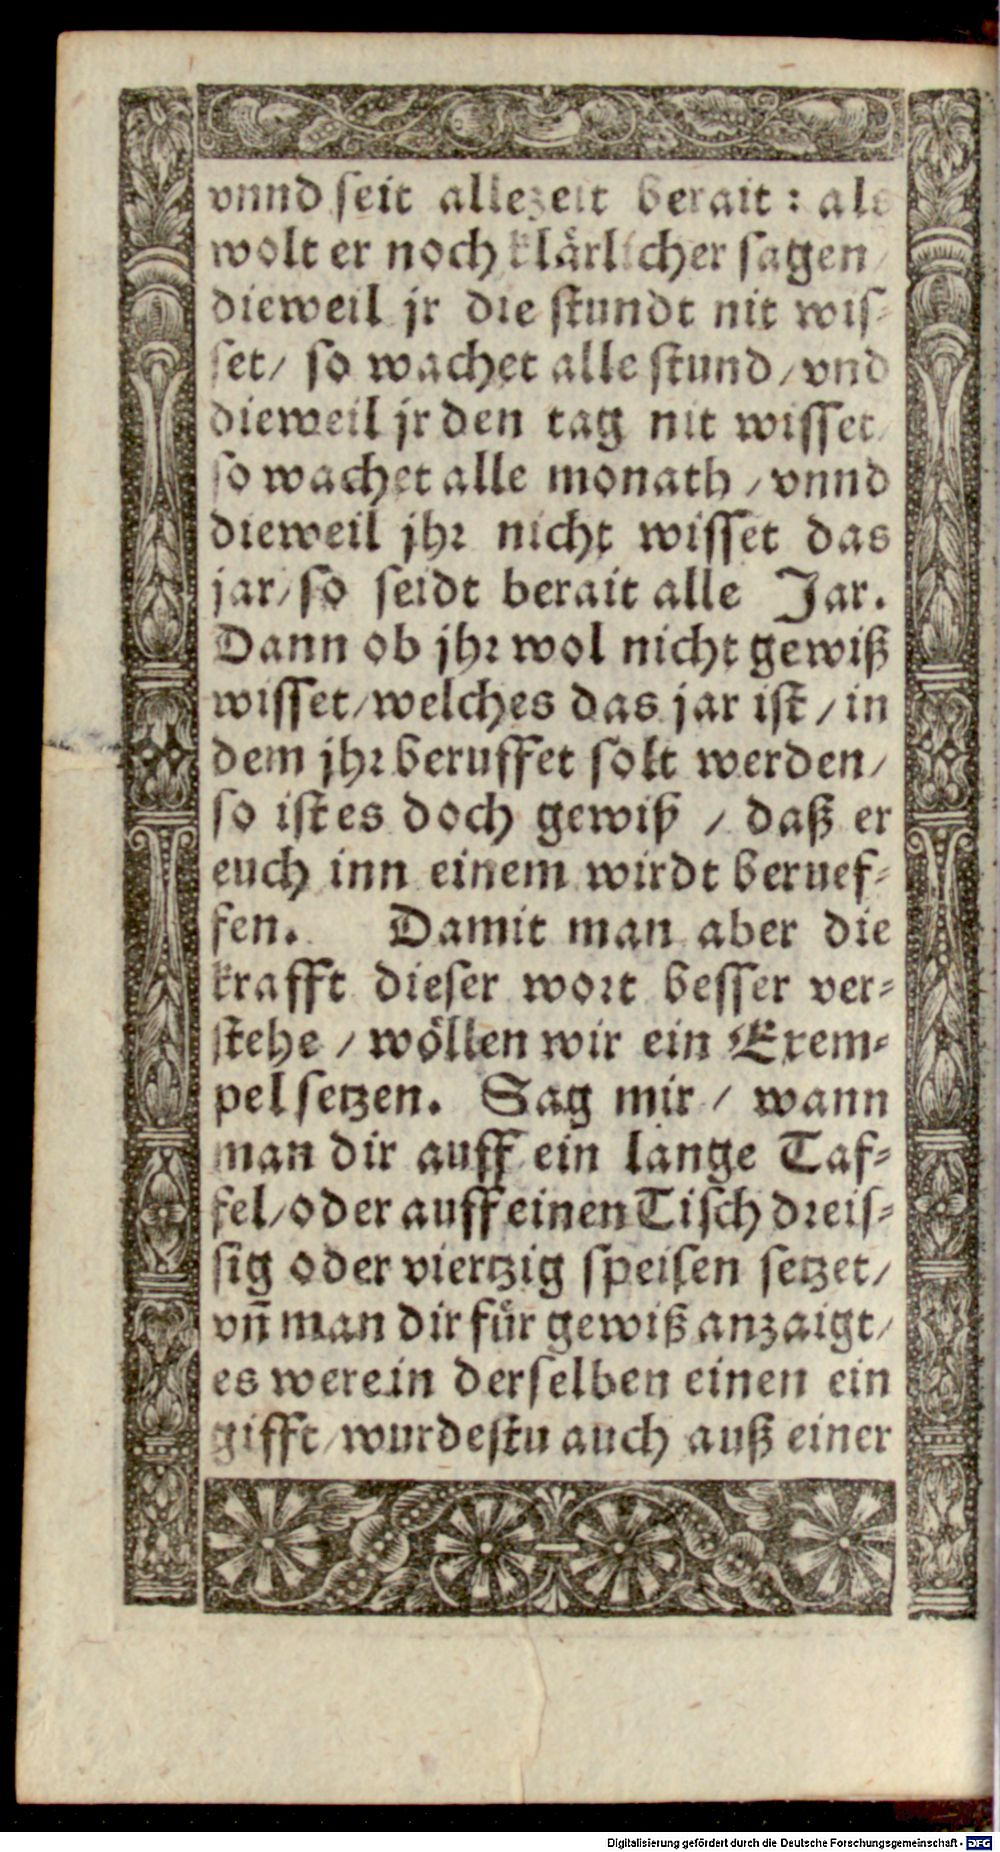 vnnd seit allezeit berait : als
wolt er noch klärlicher sagen /
dieweil jr die stundt nit wis-
set / so wachet alle stund / vnd
dieweil jr den tag nit wisset /
so wachet alle monath / vnnd
dieweil jhr nicht wisset das
jar / so seidt berait alle Jar.
Dann ob jhr wol nicht gewiß
wisset / welches das jar ist / in
dem jhr beruffet solt werden /
so ist es doch gewiß / daß er
euch inn einem wirdt beruef-
fen. Damit man aber die
krafft dieser wort besser ver-
stehe / wöllen wir ein Exem-
pel setzen. Sag mir / wann
man dir auff ein lange Taf-
fel / oder auff einen Tisch dreis-
sig oder viertzig speisen setzet /
vñ man dir für gewiß anzaigt /
es were in derselben einen ein
gifft / wurdestu auch auß einer
Digitalisierung gefördert durch die Deutsche Forschungsgemeinschaft - DFG